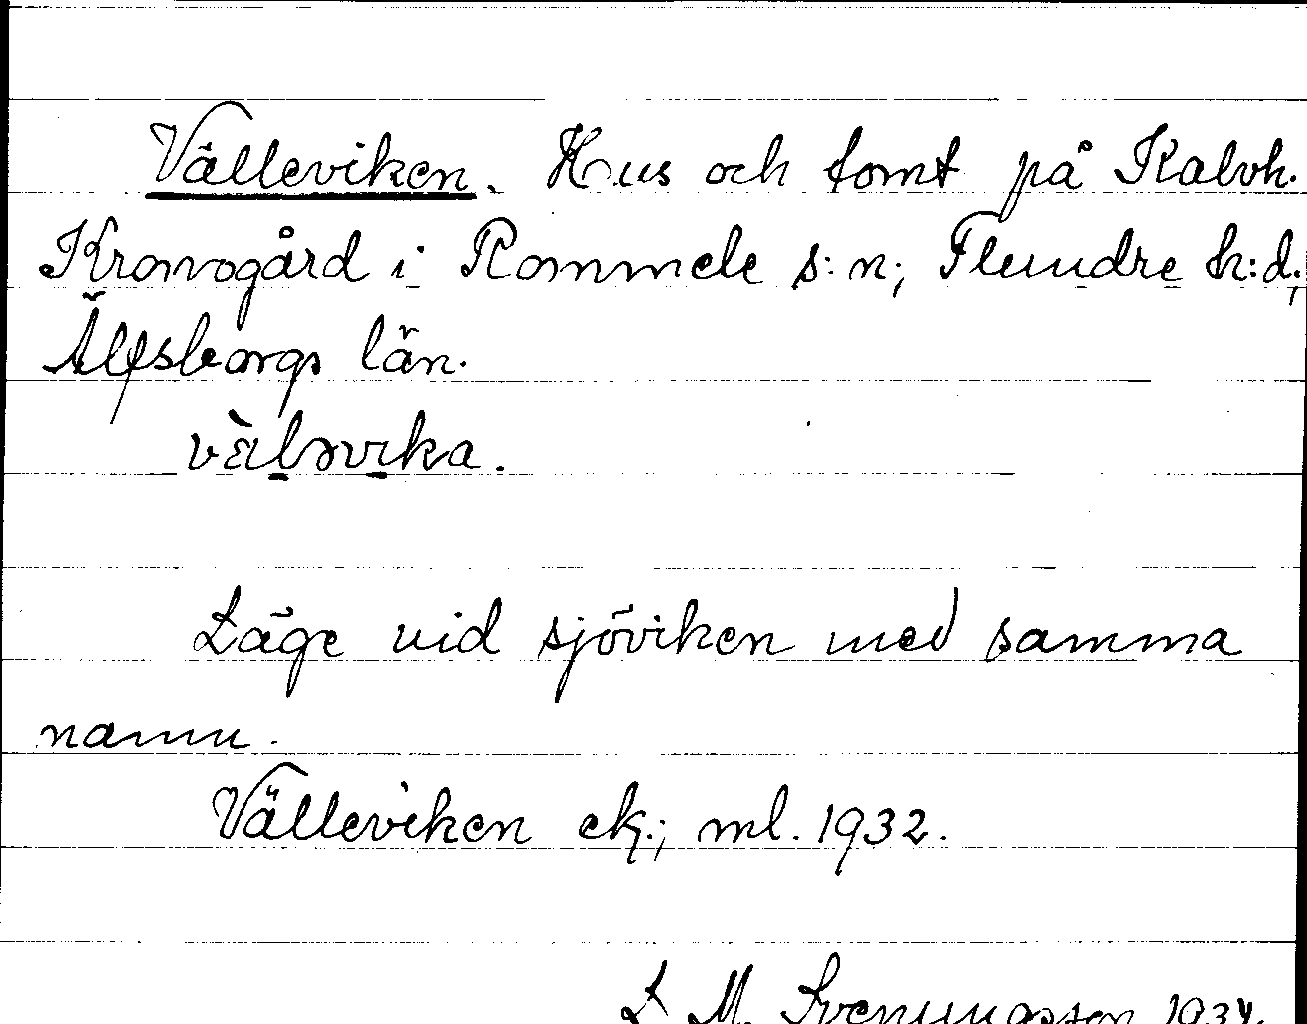 Välleviken. Hus och tomt på Kalvh.
Kronogård i Rommele s:n; Flundre h:d;
Älfsborgs län.
vä̀ḻəvi̱ka.
Läge vid sjöviken med samma
namn.
Välleviken ek.; ml. 1932.
L M. Svenungsson 1934.